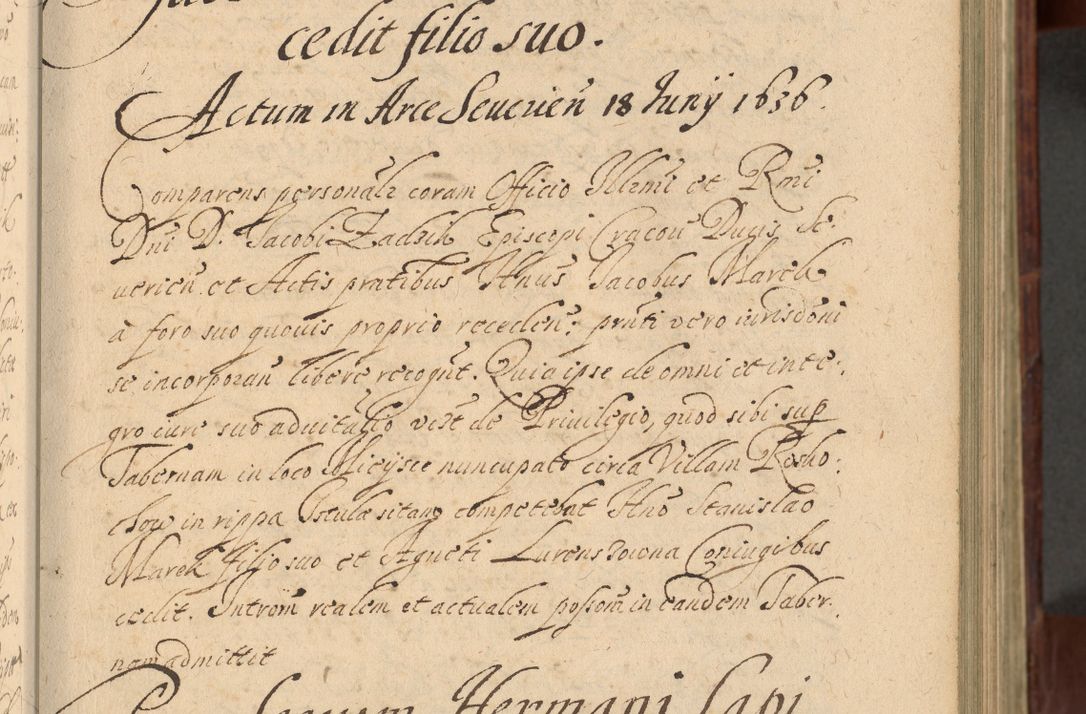 cedit filio suo.
Actum in Arce Seuerien̄ 18 Iunij 1636.
Comparens personalr̄ coram Officio Illrmi et Rmī
Dnī D. Jacobi Zadzik Episcopi Cracou Ducis Se:
uerien̄ et Actis pr̄atibus Hnūs Jacobus Marek
à foro suo quouis proprio receden: prn̄ti vero iurisdōni
se incorporan̄ libere recognt. Quia ipse de omni et inte:
gro iure suo aduitalio vīzt de Priuilegio, quod sibi sup
Tabernam in loco nuncupato circa Villam
in rippa Istulæ sitam competebat Hnō Stanislao
Marek filio suo et Agneti Coniugibus
cedit. Introm̄ realem et actualem possom̄ in eandem Taber:
nam admittit
Hermani Lapi